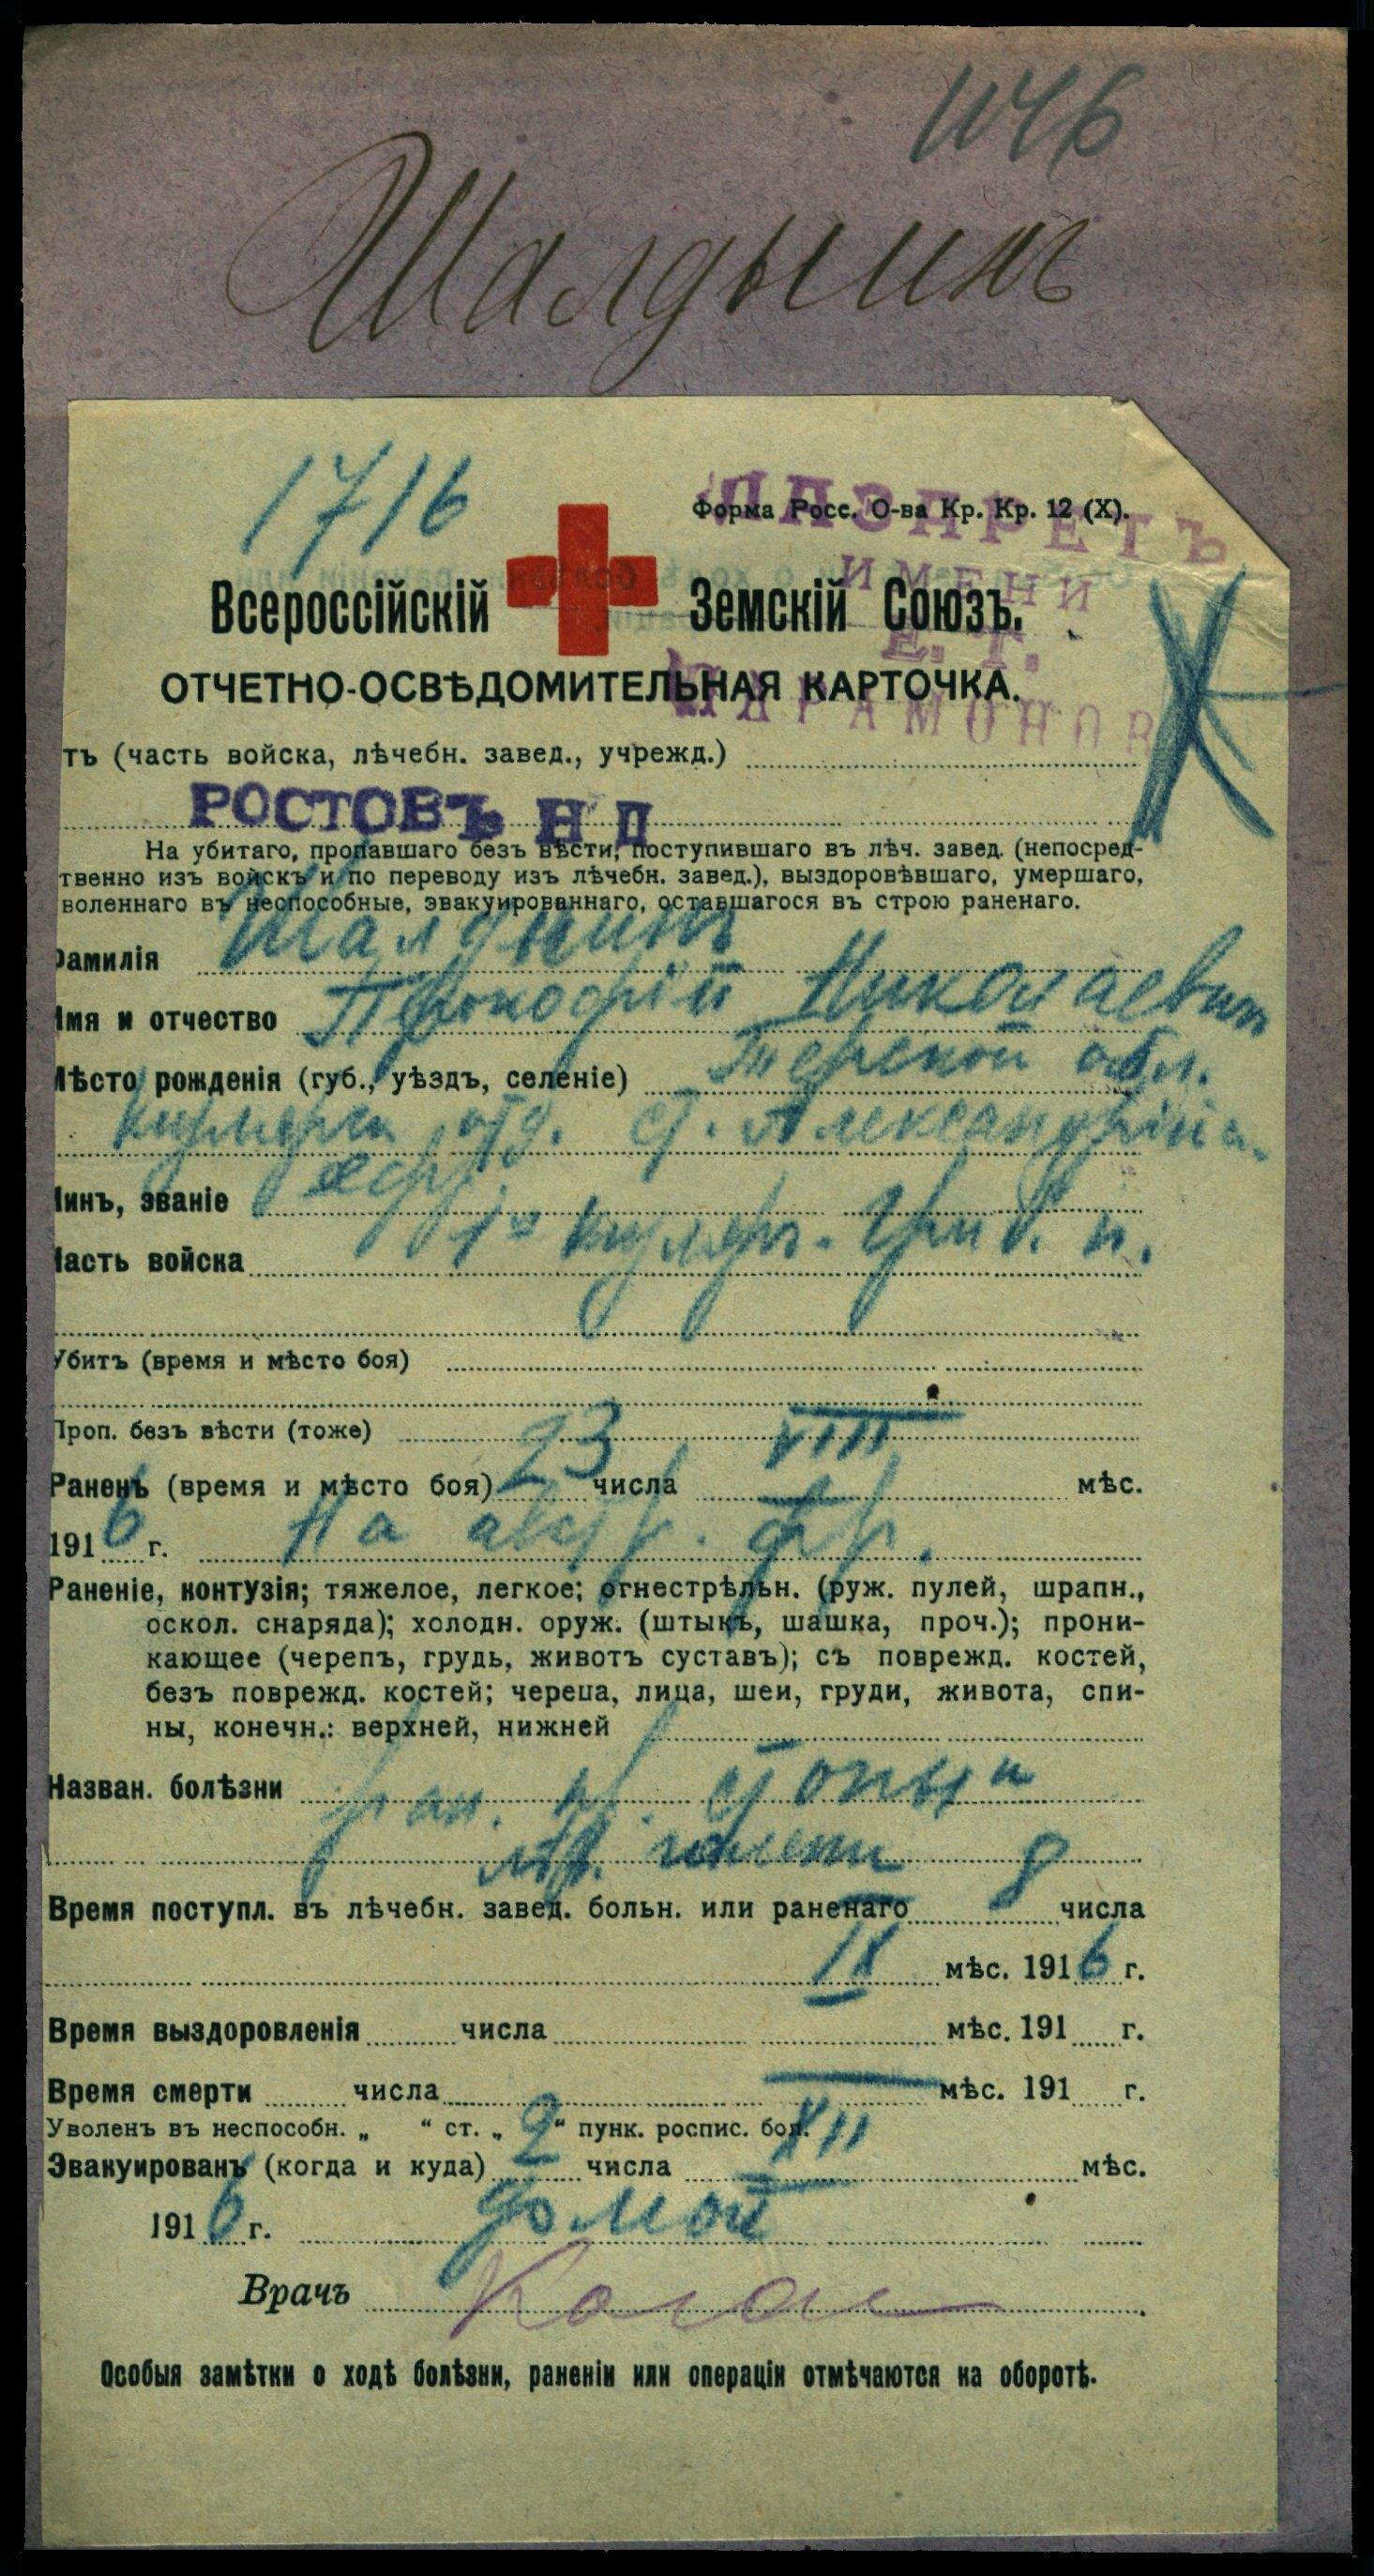 1146
Шалдынинъ
1716
ЛАЗАРЕТЪ
Форма Росс. О-ва Кр. Кр. 12 (X).
ИМЕНИ
Всероссійскій Земскій Союзъ.
Е. Т.
ОТЧЕТНО-ОСВѢДОМИТЕЛЬНАЯ КАРТОЧКА.
ПАРАМОНОВ
тъ (часть войска, лѣчебн. завед., учрежд.)
РОСТОВЪ Н Д
На убитаго, пропавшаго безъ вѣсти, поступившаго въ лѣч. завед. (непосред-
твенно изъ войскъ и по переводу изъ лѣчебн. завед.), выздоровѣвшаго, умершаго,
воленнаго въ неспособные, эвакуированнаго, оставшагося въ строю раненаго.
амилія Шалдынинъ
мя и отчество Прокофій Николаевич
ѣсто рожденія (губ., уѣздъ, селеніе) Терской обл.
Кизлярск отд. ст. Александрійск.
инъ, званіе
асть войска 1й Кизляр. Греб. п.
Убитъ (время и мѣсто боя)
Проп. безъ вѣсти (тоже)
Раненъ (время и мѣсто боя) 23 числа VIII мѣс.
1916 г. На австр. фр.
Раненіе, контузія; тяжелое, легкое; огнестрѣльн. (руж. пулей, шрапн.,
оскол. снаряда); холодн. оруж. (штыкъ, шашка, проч.); прони-
кающее (черепъ, грудь, животъ суставъ); съ поврежд. костей,
безъ поврежд. костей; черепа, лица, шеи, груди, живота, спи-
ны, конечн.: верхней, нижней
Назван. болѣзни ран. пр. стопы и
Время поступл. въ лѣчебн. завед. больн. или раненаго 8 числа
IX мѣс. 1916 г.
Время выздоровленія числа мѣс. 191 г.
Время смерти числа мѣс. 191 г.
Уволенъ въ неспособн. „ “ ст. „ “ пунк. роспис. бол.
Эвакуированъ (когда и куда) 2 числа XII мѣс.
1916 г. домой
Врачъ
Особыя замѣтки о ходѣ болѣзни, раненіи или операціи отмѣчаются на оборотѣ.